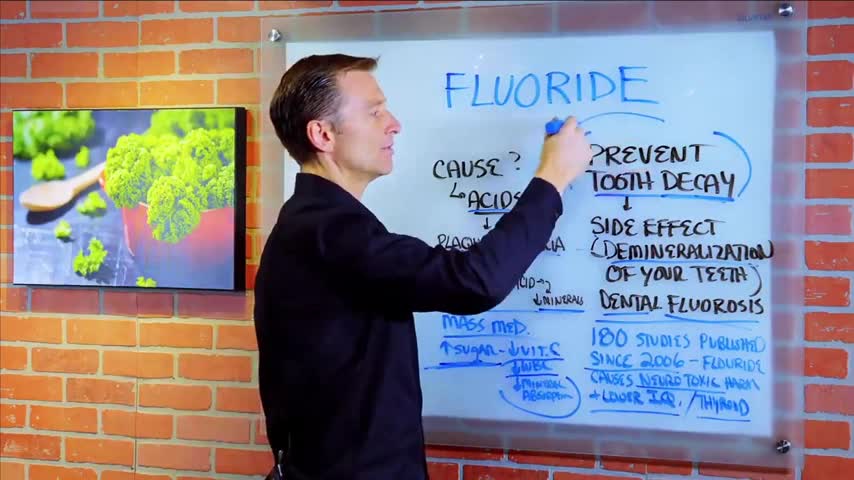 FLUORIDE
CAUSE?
ACIDS
PLAQ
ACID→
↓MINERALS
MASS MED.
↑SUGAR-↓VIT.C
↓WBC
↓MINERAL
ABSORPTION
PREVENT
TOOTH DECAY
↓
SIDE EFFECT
(DEMINERALIZATION
OF YOUR TEETH)
DENTAL FLUOROSIS
180 STUDIES PUBLISHED
SINCE 2006-FLOURIDE
CAUSES NEUROTOXIC HARM
+ LOWER I.Q. / THYROID